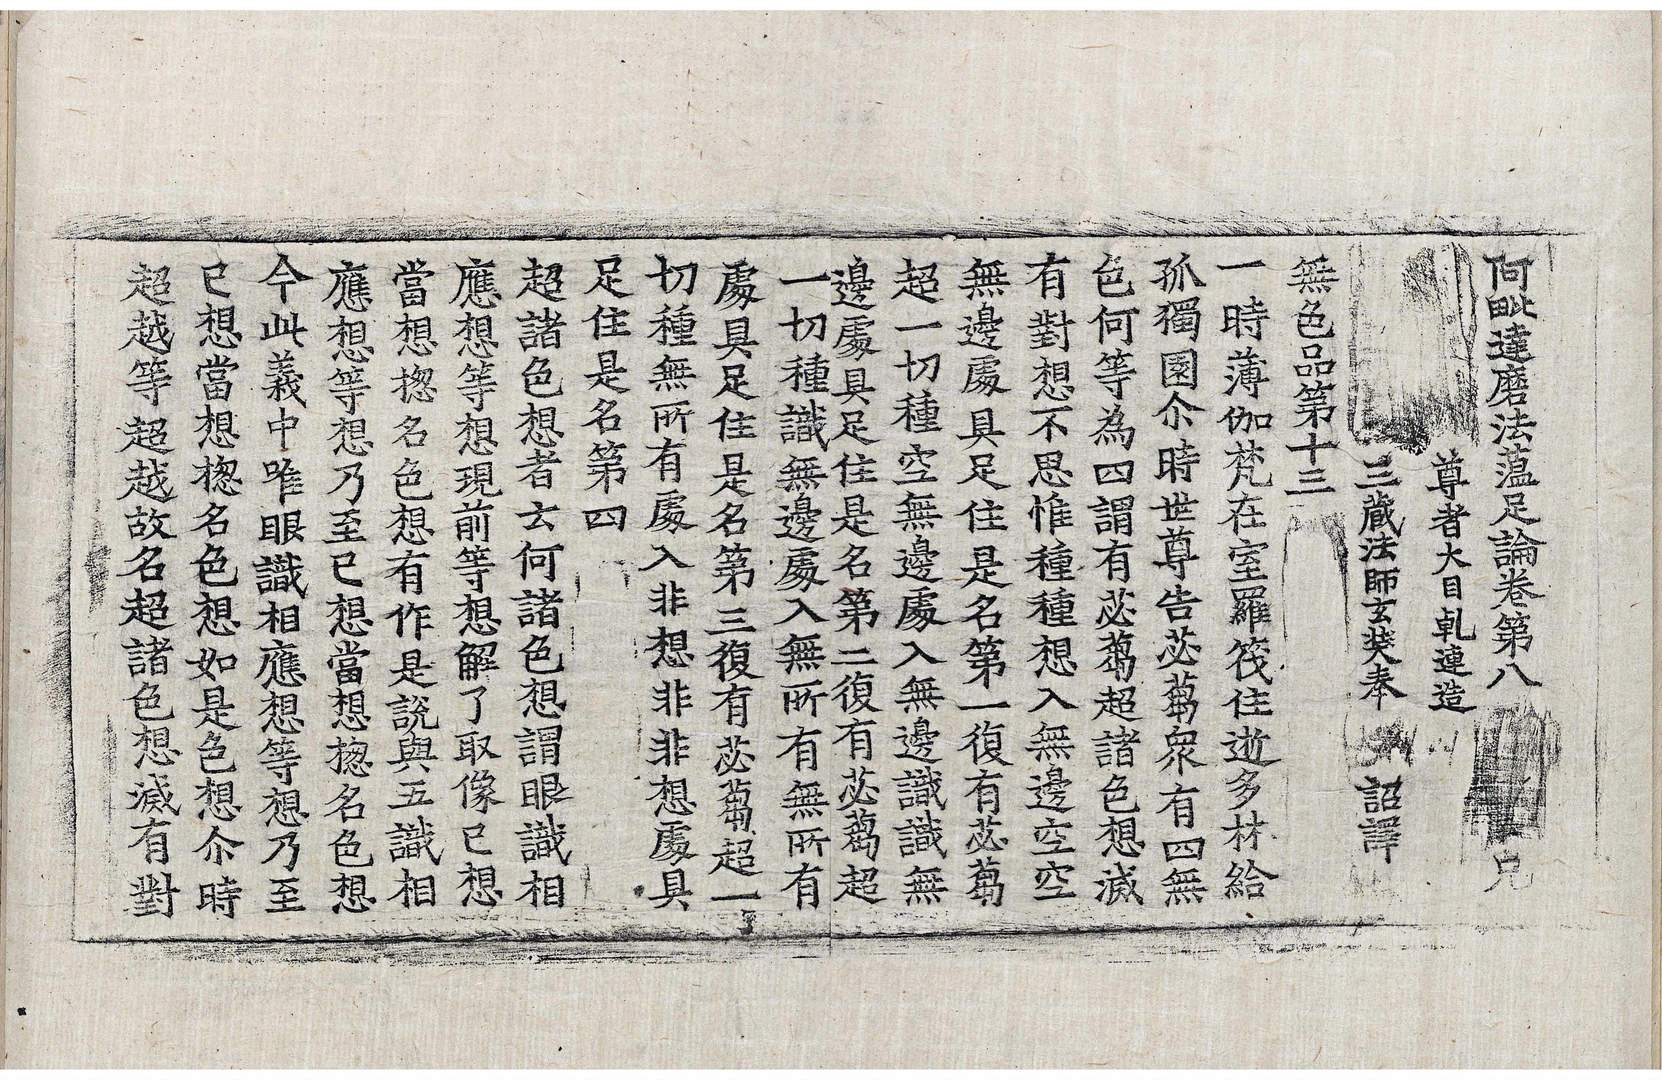 阿毗達磨法蕰足論卷第八 兄
尊者大目乹連造
三藏法師玄奘奉 詔譯
無色品第十三
一時薄伽梵在室羅筏住逝多林給
孤獨園尒時世尊告苾蒭衆有四無
色何等為四謂有苾蒭超諸色想滅
有對想不思惟種種想入無邊空空
無邊處具足住是名第一復有苾蒭
超一切種空無邊處入無邊識識無
邊處具足住是名第二復有苾蒭超
一切種識無邊處入無所有無所有
處具足住是名第三復有苾蒭超一
切種無所有處入非想非非想處具
足住是名第四
超諸色想者云何諸色想謂眼識相
應想等想現前等想解了取像已想
當想揔名色想有作是說與五識相
應想等想乃至已想當想揔名色想
今此義中唯眼識相應想等想乃至
已想當想揔名色想如是色想尒時
超越等超越故名超諸色想滅有對